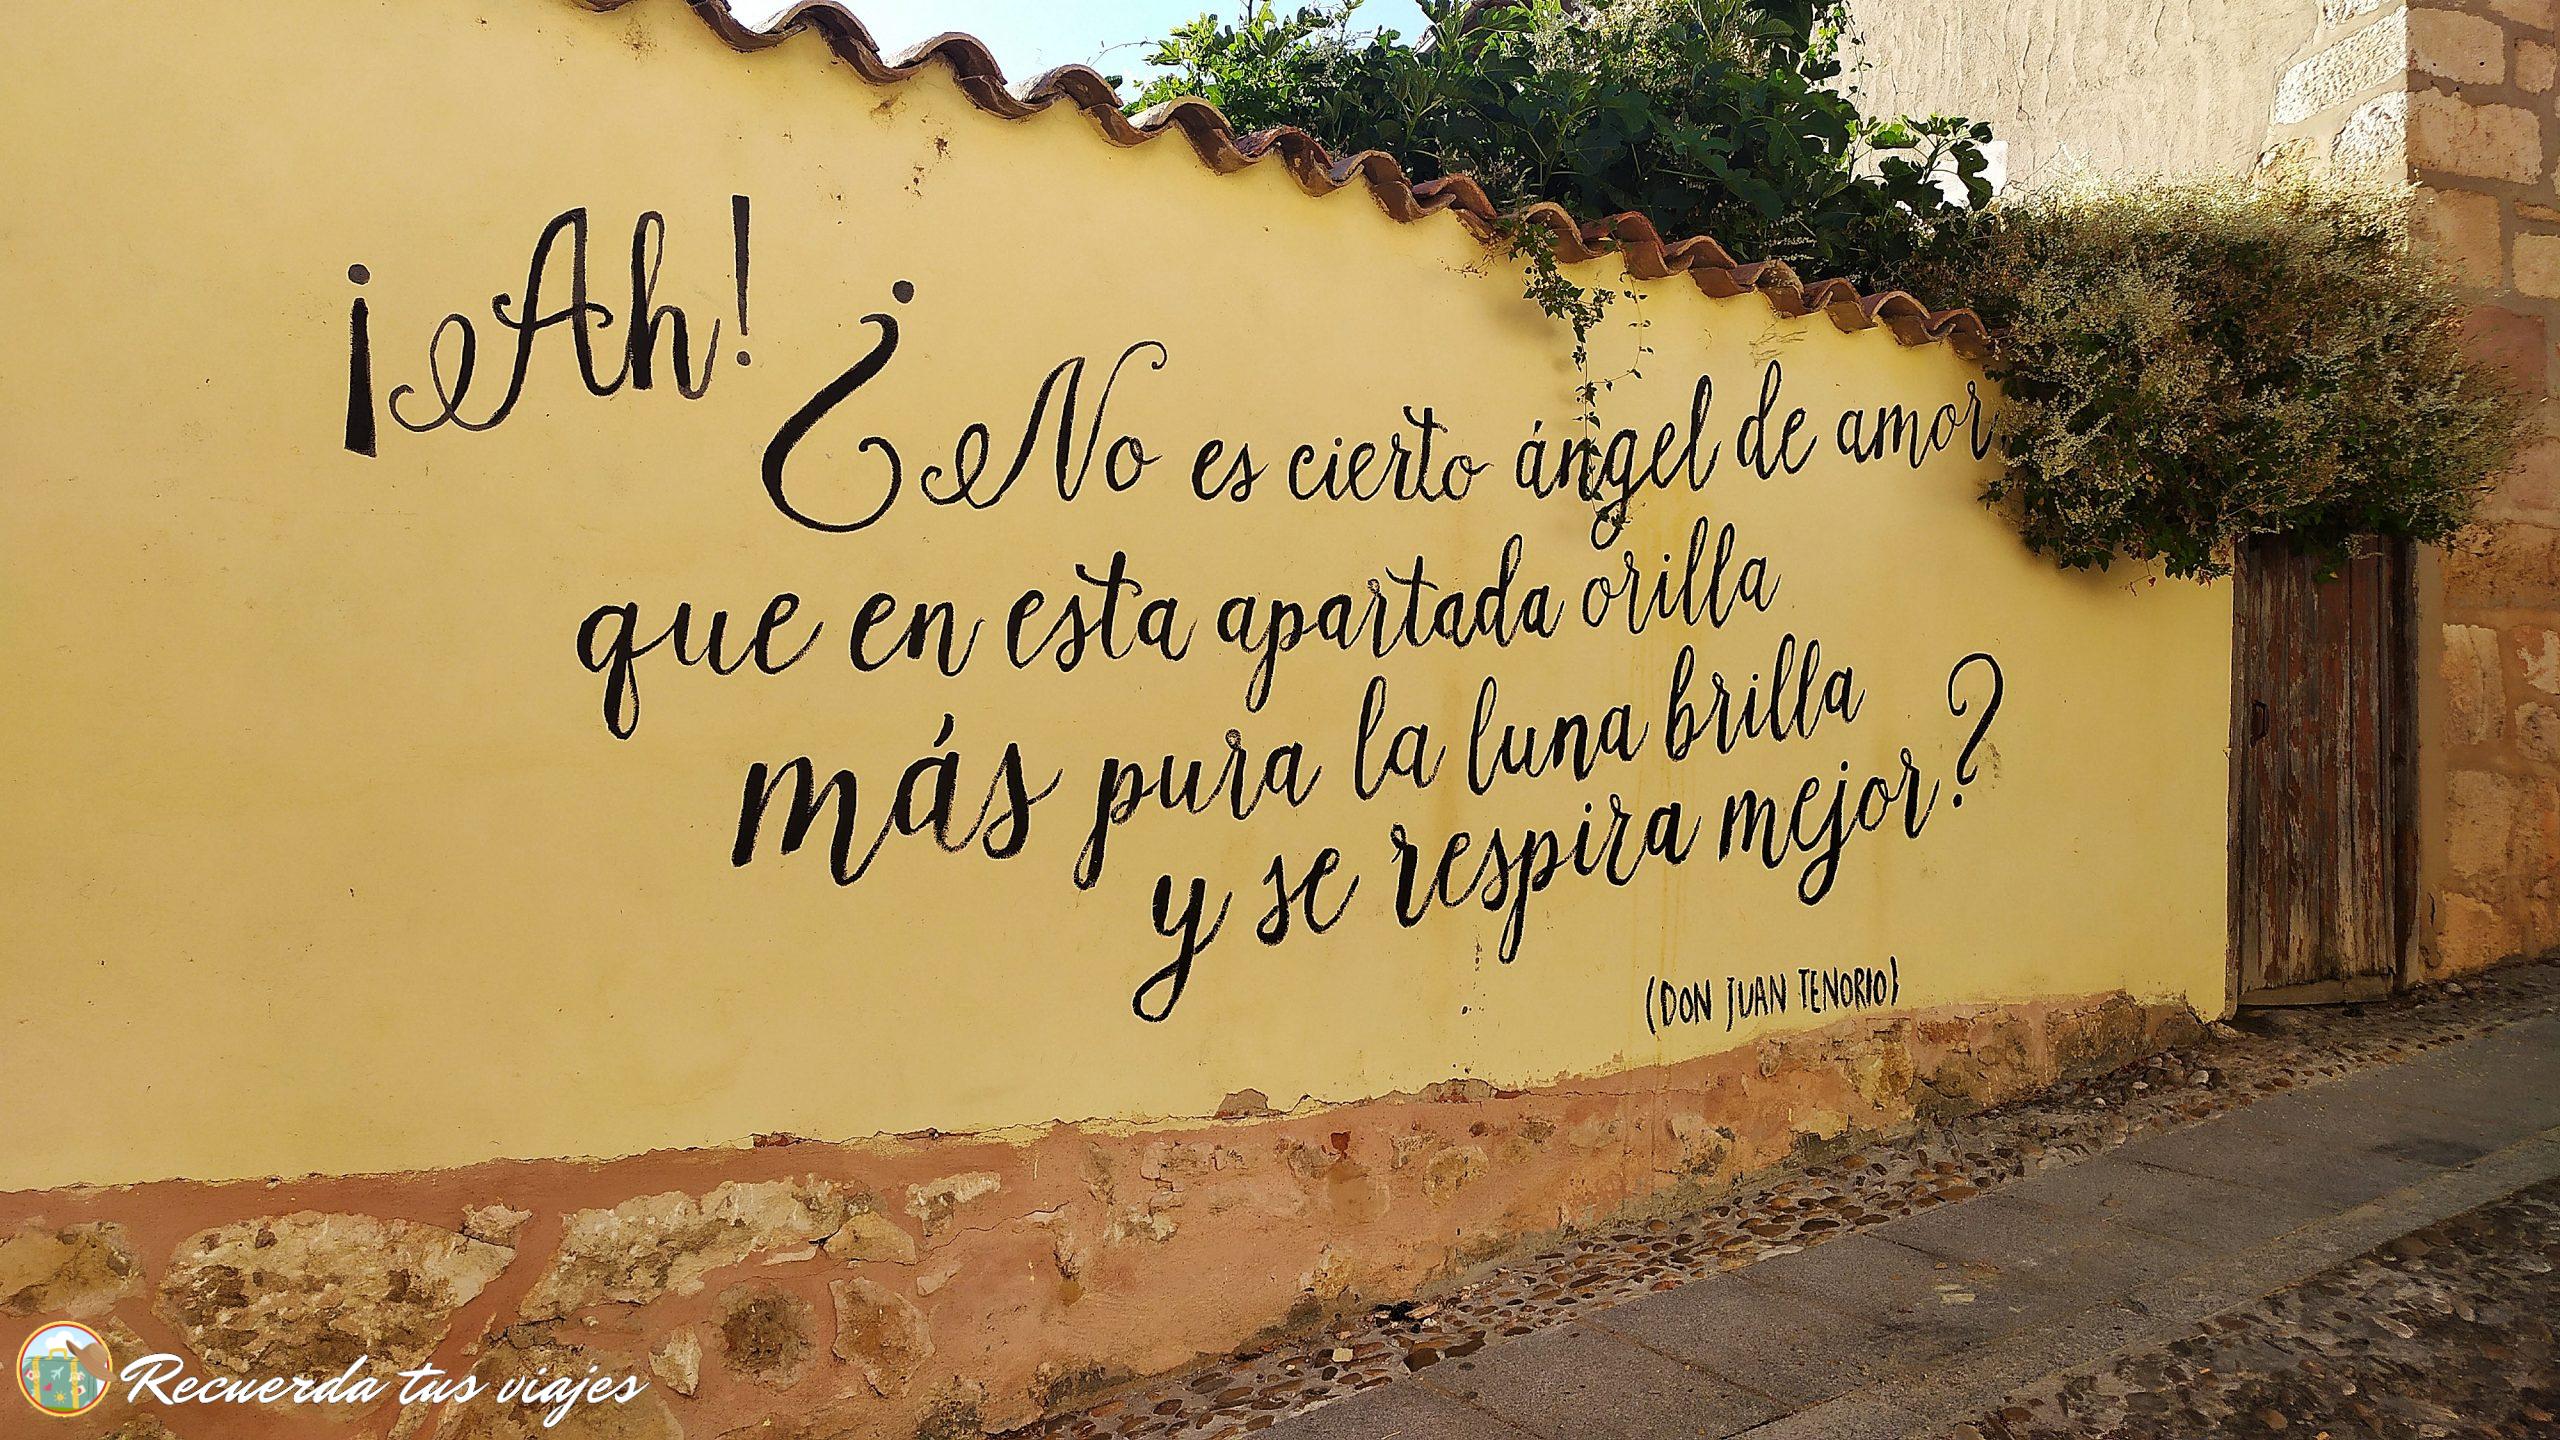 ¡Ah!
¿No es cierto ángel de amor,
que en esta apartada orilla
más pura la luna brilla
y se respira mejor?
(DON JUAN TENORIO)
Recuerda tus viajes